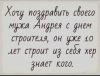 Хочу поздравить своего
мужа Андрея с днем
строителя, он уже 10
лет строит из себя хер
знает кого.